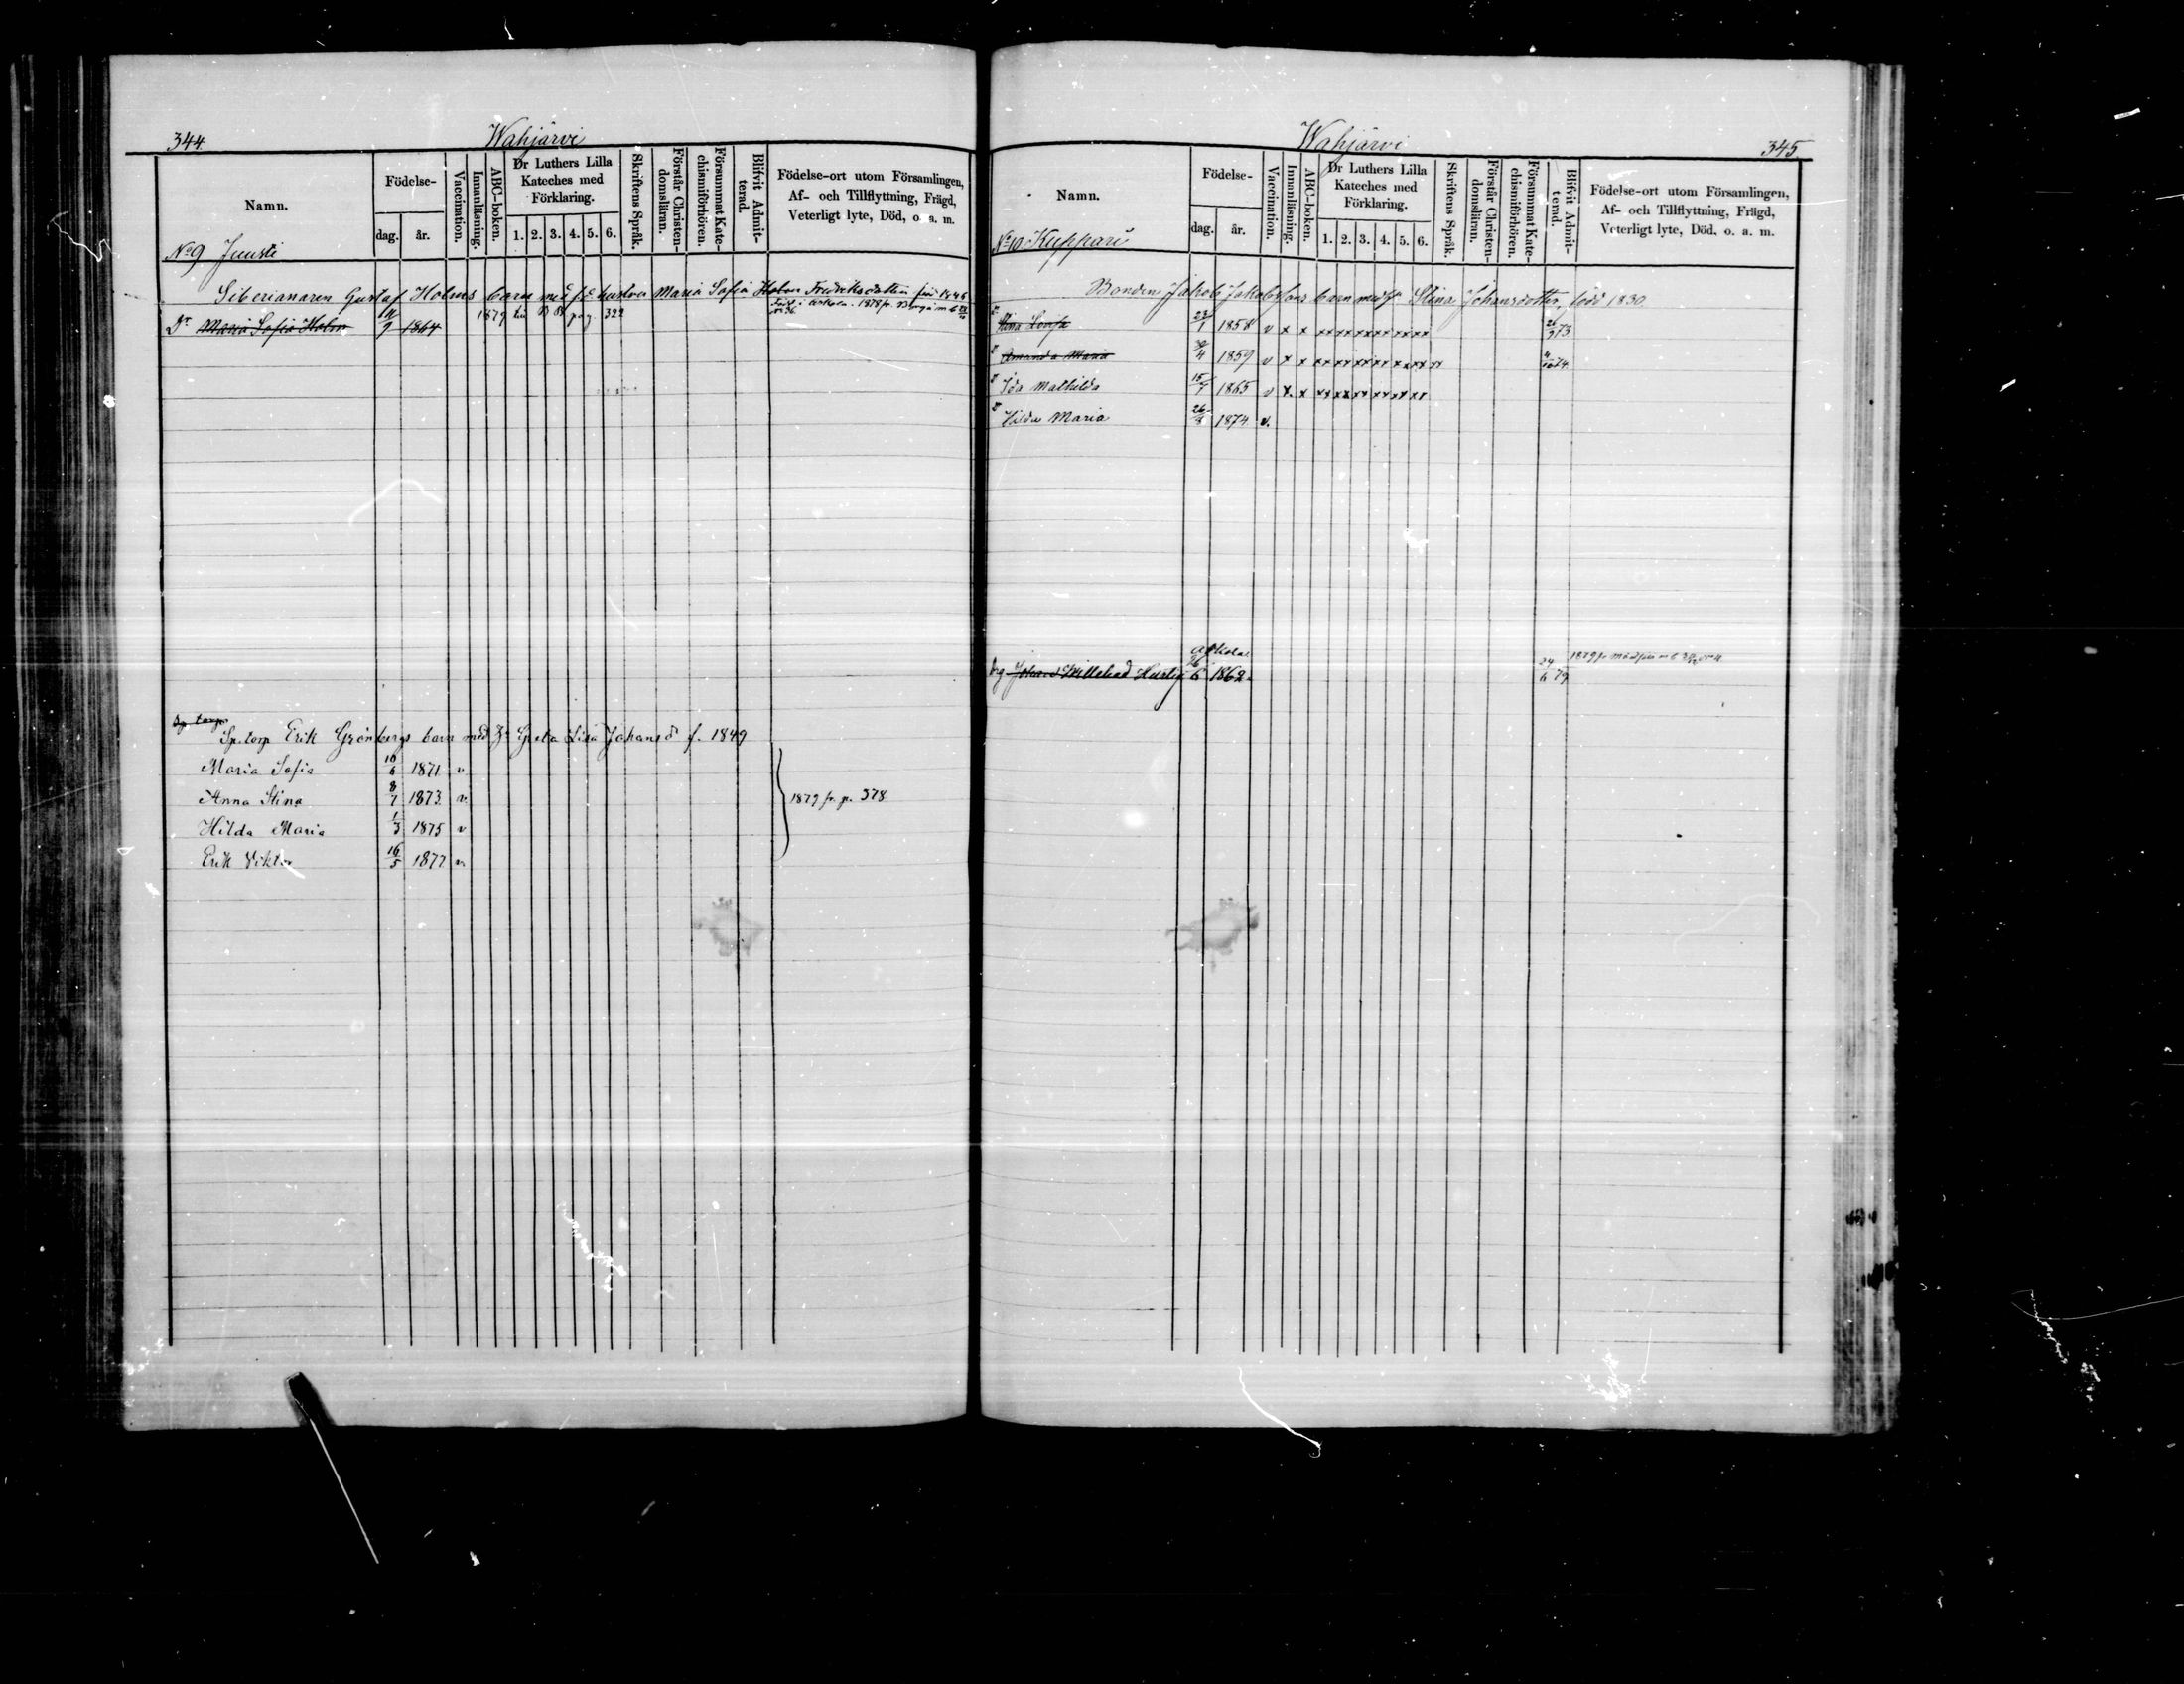 344.
Wahjärvi
Namn.
Födelse-
dag.
år.
Vaccination.
Innanläsning.
ABC-boken.
Dr Luthers Lilla
Kateches med
Förklaring.
1. 2. 3. 4. 5. 6.
Skriftens Språk.
Förstår Christen-
domsläran.
Försummat Kate-
chismiförhören.
Blifvit Admit-
terad.
Födelse-ort utom Församlingen,
Af- och Tillflyttning, Frägd,
Veterligt lyte, Död, o. a. m.
No 9 Juusti
Siberianaren Gustaf Holms barn med f.d. hustru Maria Sofia Holm Fredriksdotter
Dr Maria Sofia Holm 11/9 1864 1879 B pag. 322 1878 fr. Borgå
Sp. torp Erik Grönbergs barn med H. Greta Lisa Johansd f. 1849
Maria Sofia 10/6 1871 v
Anna Stina 8/7 1873 v.
1879 fr. p. 378
Hilda Maria 1/3 1875 v
Erik Viktor 16/5 1877 v.
Wahjärvi
345.
Namn.
Födelse-
dag.
år.
Vaccination.
Innanläsning.
ABC-boken.
Dr Luthers Lilla
Kateches med
Förklaring.
1. 2. 3. 4. 5. 6.
Skriftens Språk.
Förstår Christen-
domsläran.
Försummat Kate-
chismiförhören.
Blifvit Admit-
terad.
Födelse-ort utom Församlingen,
Af- och Tillflyttning, Frägd,
Veterligt lyte, Död, o. a. m.
No 10 Kuppari
Bonden Jakob Jakobsons barn med H. Stina Johansdotter, född 1830
Stina Lovisa 1858 v x x xx xx xx xx xx xx
Amanda Maria 1859 v x x xx xx xx xx xx xx xx
Ida Mathilda 15/7 1865 v x. x xx xx xx xx xx xx
Hilda Maria 1874 v.
Askola
Dg Johan Willehad Hurtig 1862 24/6 79